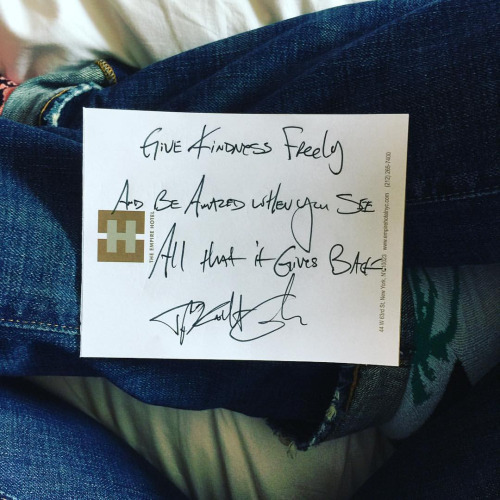 Give Kindness Freely
And Be Amazed when you See
All that it Gives Back
H
THE EMPIRE HOTEL
44 W 63rd St, New York, NY 10023
www.empirehotelnyc.com (212) 265-7400